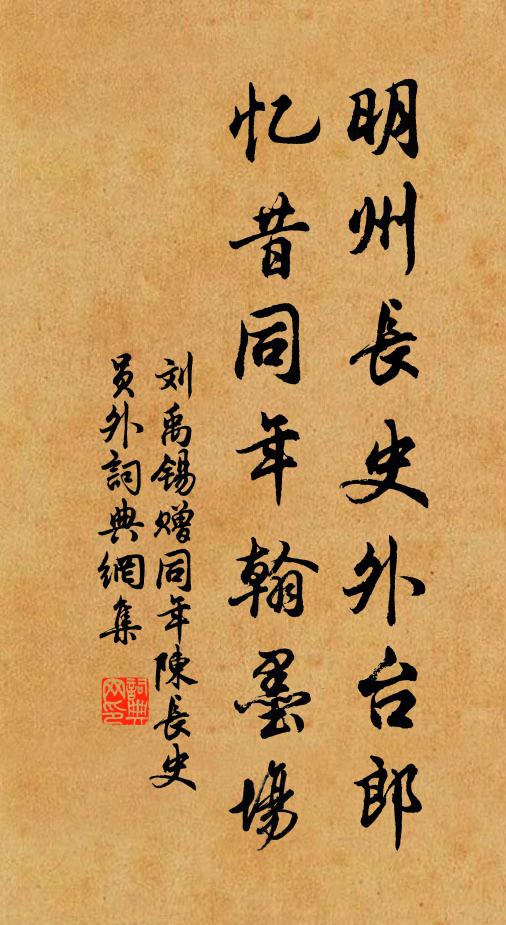 明州長史外台郎
忆昔同年翰墨場
刘禹锡赠同年陳長史
員外詞典網集
詞典網印